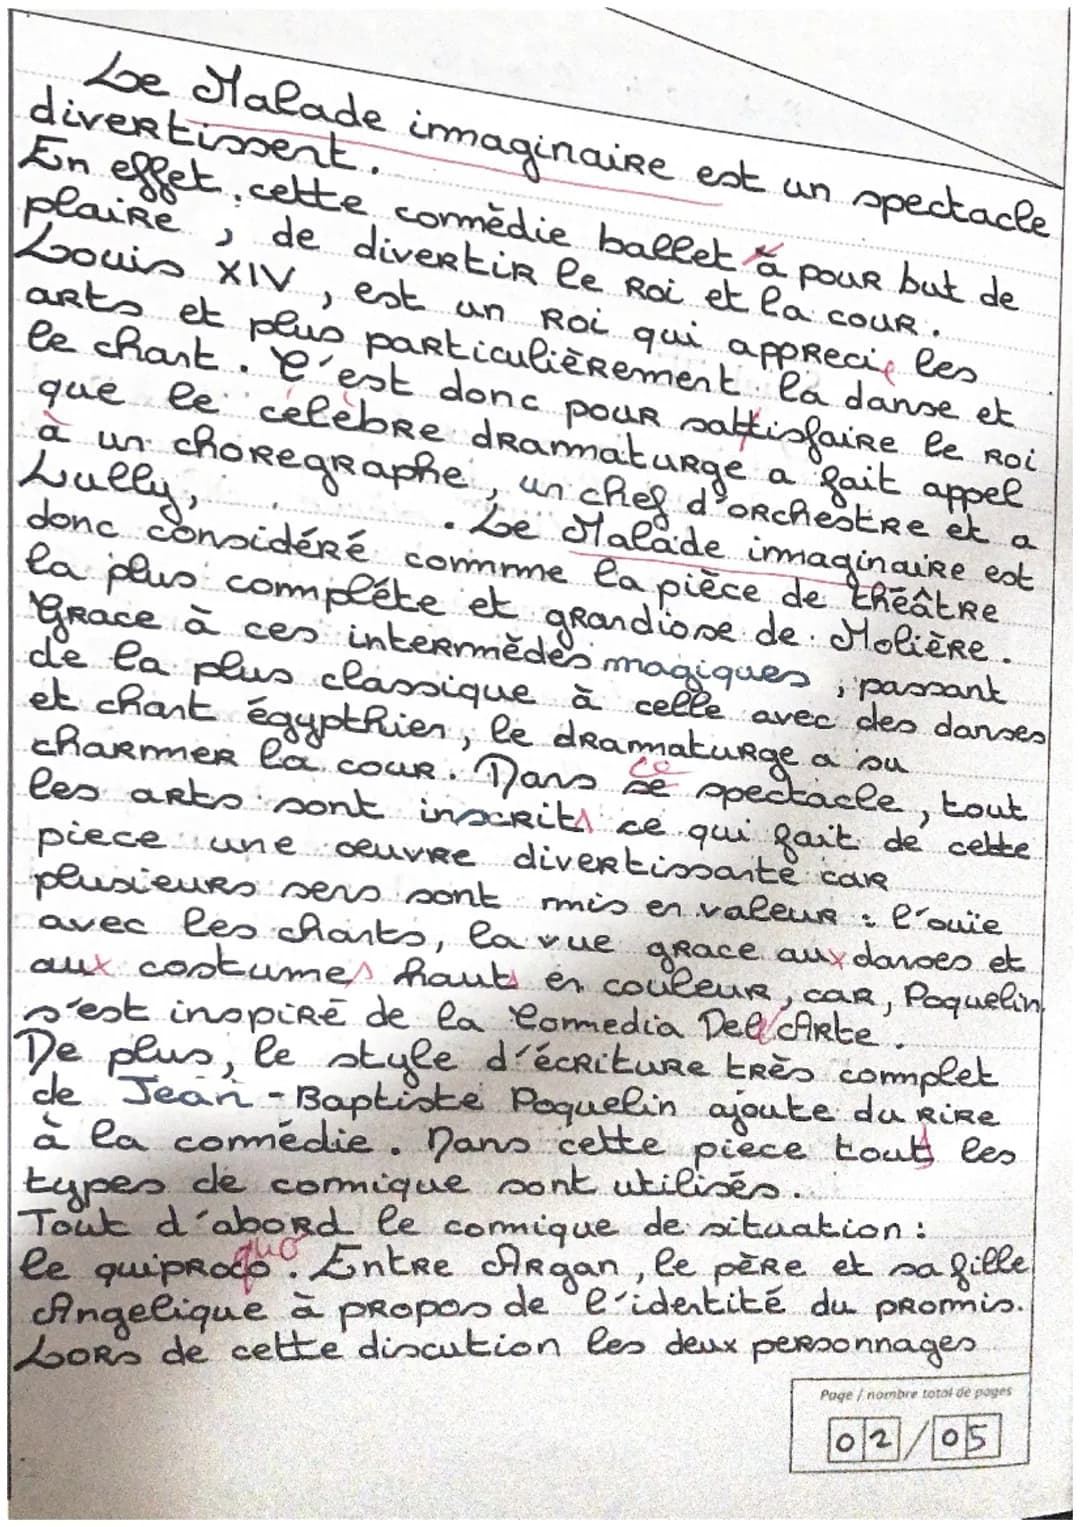 Le Malade imaginaire est un spectacle
divertissent.
En effet, cette comèdie ballet à pour but de
plaire, de divertir le Roi et la cour.
Louis XIV, est un Roi qui appreci e les
arts et plus particulièrement la danse et
le chant. C'est donc pour sattisfaire le roi
que le célèbre dramaturge a fait appel
à un choregraphe, un chef d'orchestre et a
Lully,
. Le Malade imaginaire est
donc considéré comme la pièce de théâtre
la plus complète et grandiose de Molière.
Grace à ces intermèdes magiques, passant
de la plus classique à celle avec des danses
et chant égypthien, le dramaturge a su
charmer la cour. Dans se ce spectacle, tout
les arts sont inscrits ce qui fait de cette
piece une œuvre divertissante car
plusieurs sens sont mis en valeur : l'ouïe
avec les chants, la vue grace aux danses et
aux costumes hauts en couleur, car, Poquelin
s'est inspiré de la Comedia Dell'Arte.
De plus, le style d'écriture très complet
de Jean-Baptiste Poquelin ajoute du rire
à la comédie. Dans cette piece touts les
types de comique sont utilisés.
Tout d'abord le comique de situation :
le quiproco quo. Entre Argan, le père et sa fille
Angelique à propos de l'identité du promis.
Lors de cette discution les deux personnages
Page / nombre total de pages
02/05